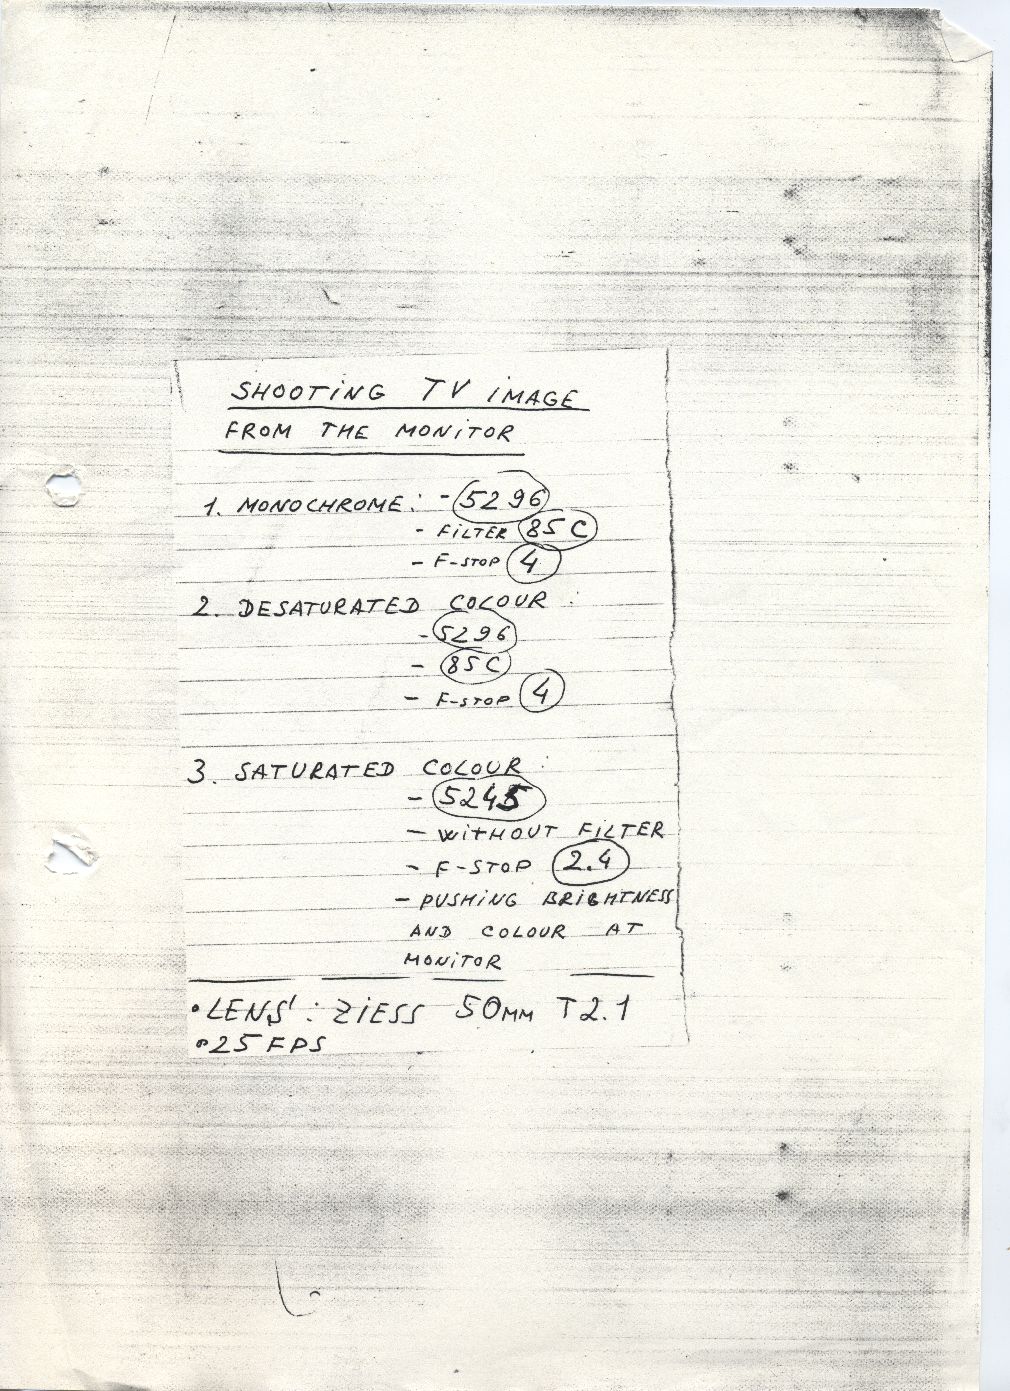 SHOOTING TV IMAGE
FROM THE MONITOR
1. MONOCHROME: - 5296
- FILTER 85C
- F-STOP 4
2. DESATURATED COLOUR:
- 5296
- 85C
- F-STOP 4
3. SATURATED COLOUR:
- 5245
- WITHOUT FILTER
- F-STOP 2.4
- PUSHING BRIGHTNESS
AND COLOUR AT
MONITOR
• LENS: ZIESS 50MM T2.1
• 25 FPS